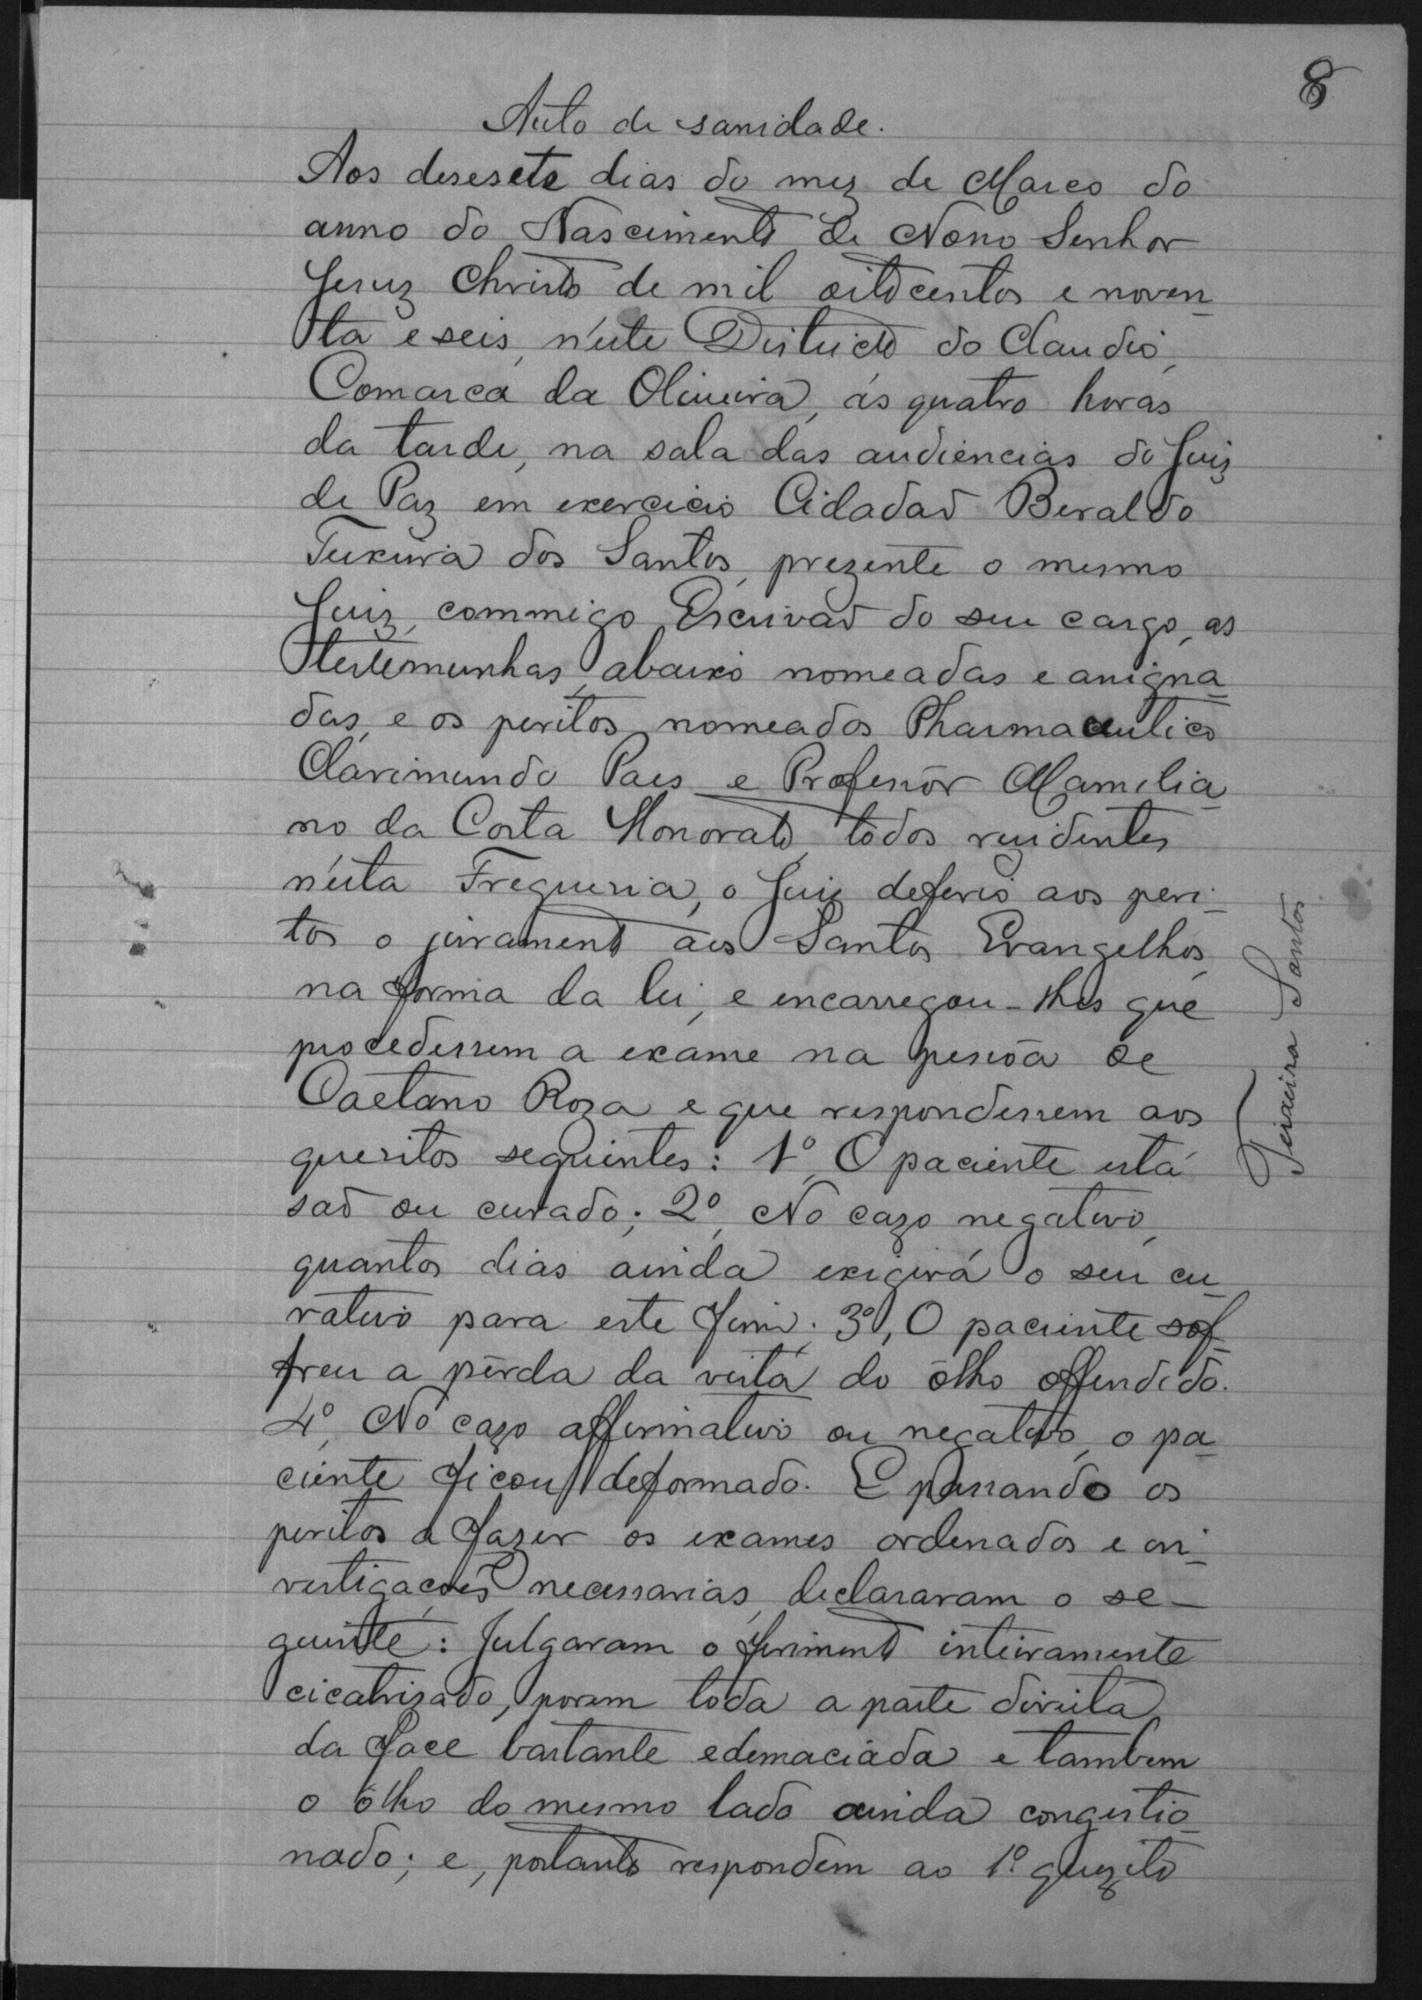 8
Auto de sanidade.
Aos desesete dias do mez de Março do
anno do Nascimento de Nosso Senhor
Jesuz Christo de mil oitocentos e noven-
ta e seis, n'este Districto do Claudio,
Comarca da Oliveira, ás quatro horas
da tarde, na sala das audiencias do Juiz
de Paz em exercicio Cidadaõ Beraldo
Teixeira dos Santos, prezente o mesmo
Juiz, commigo Escrivaõ do seu cargo, as
testemunhas abaixo nomeadas e assigna-
das, e os peritos nomeados Pharmaceutico
Clarimundo Paes e Professôr Mamilia-
no da Costa Honorato, todos residentes
n'esta Freguesia, o Juiz deferio aos peri-
tos o juramento aos Santos Evangelhos,
na forma da lei, e encarregou-lhes que
procedessem a exame na pessôa de
Caetano Roza e que respondessem aos
quesitos seguintes: 1º, O paciente está
saõ ou curado; 2º, No cazo negativo,
quantos dias ainda exigirá o seu cu-
rativo para este fim; 3º, O paciente sof-
freu a pêrda da vista do ôlho offendido.
4º, No cazo affirmativo ou negativo, o pa-
ciente ficou deformado. E passando os
peritos a fazer os exames ordenados e in-
vestigações necessarias, declararam o se-
guinte: Julgaram o ferimento inteiramente
cicatrisado, porem toda a parte direita
da face bastante edemaciada e tambem
o ôlho do mesmo lado ainda congestio-
nado; e, portanto respondem ao 1º quezito
Teixeira Santos